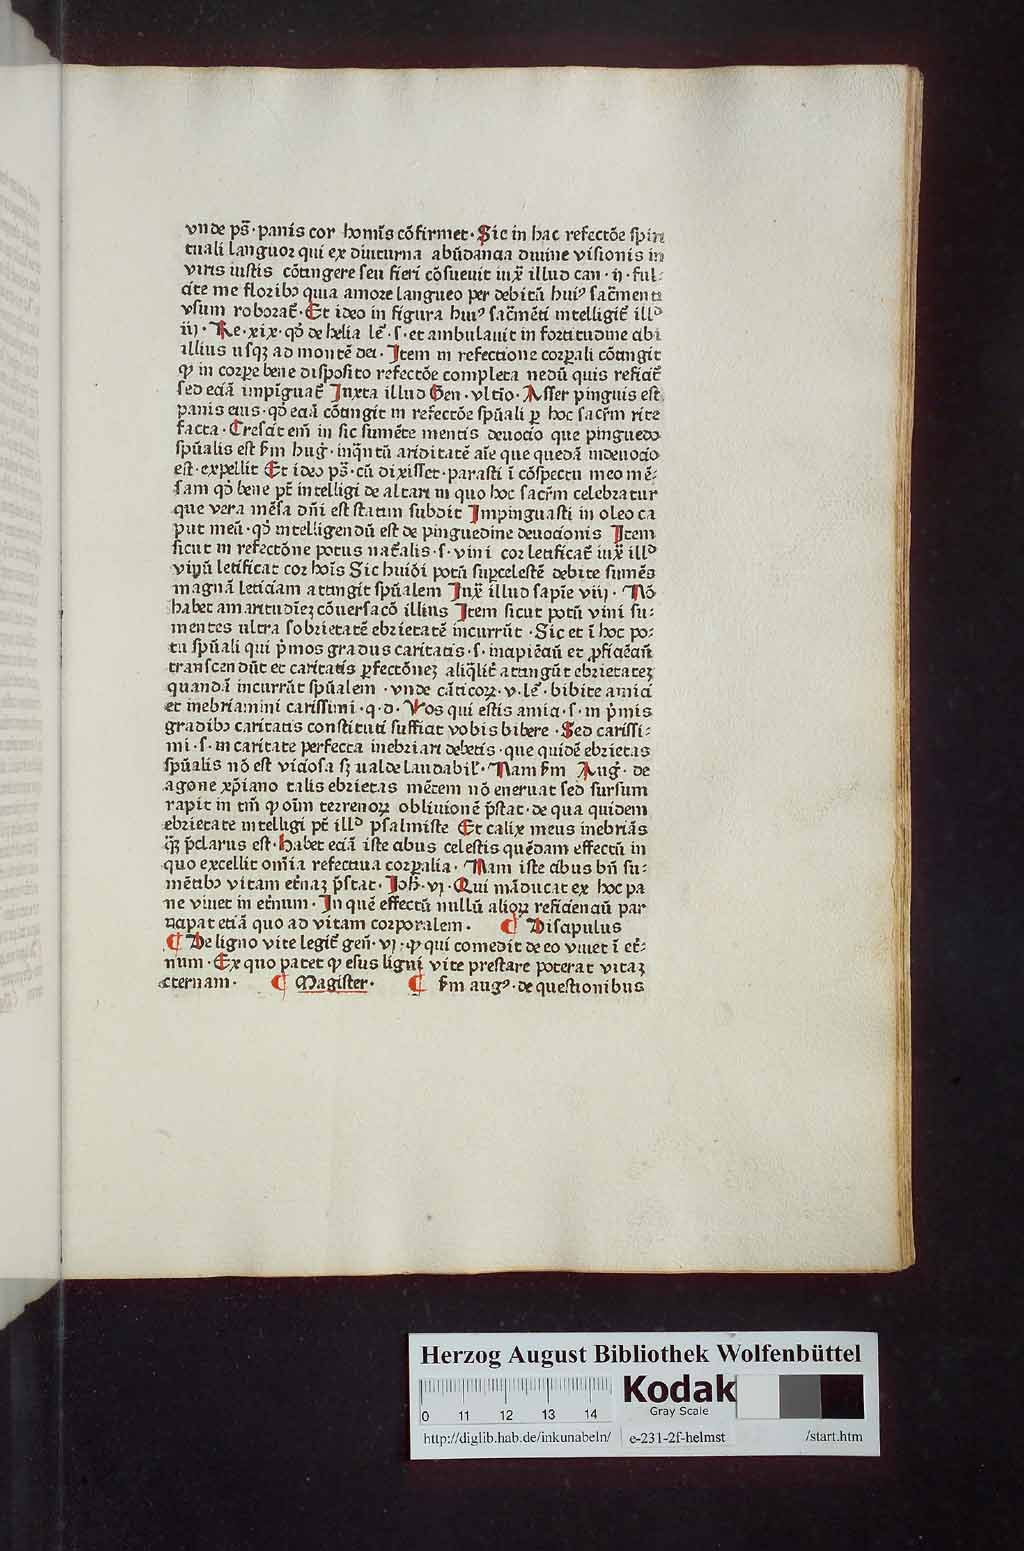 vnde ps̄· panis cor homīs cōfirmet· Sic in hac refectōe spiri
tuali languor qui ex diuturna abūdancia diuine visionis in
viris iustis cōtingere seu fieri cōsueuit iux̄ illud can· ij· ful-
cite me floribꝫ quia amore langueo per debitū huiꝰ sac̄menti
vsum roborat̄· Et ideo in figura huiꝰ sac̄mēti intelligit̄ illᵈ
iij· Re· xix· qð de helia le᷑· s· et ambulauit in fortitudine cibi
illius usqꝫ ad montē dei· Item in refectione corꝑali cōtingit
ꝙ in corꝑe bene disposito refectōe completa nedū quis reficit̄
sed eciā impīguat̄ Iuxta illud Gen· vltīo· Asser pinguis est
panis eius· qð eciā cōtingit in refectōe spūali ꝑ hoc sacr̄m rite
facta· Crescit em̄ in sic sumēte mentis deuocio que pinguedo
spūalis est s̄m hug᷑· inqn̄tū ariditatē aīe que quedā indeuocio
est· expellit Et ideo ps̄· cū dixisset· parasti ī cōspectu meo mē-
sam qð bene pt̄ intelligi de altari in quo hoc sacr̄m celebratur
que vera mēsa dn̄i est statim subdit Impinguasti in oleo ca
put meū· qð intelligendū est de pinguedine deuocionis Item
sicut in refectōne potus nat᷑alis· s· vini cor letificat̄ iux̄ illᵈ
vinū letificat cor hoīs Sic huiōi potū suꝑcelestē debite sumēs
magnā leticiam attingit spūalem Iux̄ illud sapīe viij· Nō
habet amaritudīeꝫ cōuersacō illius Item sicut potū vini su-
mentes ultra sobrietatē ebrietatē incurrūt· Sic et ī hoc po-
tu spūali qui pͥmos gradus caritatis· s· incipiēciū et ꝓficiēciū
transcendūt et caritatis ꝑfectōneꝫ aliq̄lit̄ attingūt ebrietateꝫ
quandā incurrūt spūalem· vnde cāticoꝝ· v· le᷑· bibite amici
et inebriamini carissimi· q· d· Vos qui estis amici· s· in pͥmis
gradibꝫ caritatis constituti sufficiat vobis bibere· Sed carissi-
mi· s· in caritate perfecta inebriari debetis· que quidē ebrietas
spūalis nō est viciosa sꝫ ualde laudabil᷑· Nam s̄m Aug᷑· de
agone xp̄iano talis ebrietas mētem nō eneruat sed sursum
rapit in tm̄ ꝙ oīm terrenoꝝ obliuionē p̄stat· de qua quidem
ebrietate intelligi pt̄ illᵈ psalmiste Et calix meus inebriās
q̄ꝫ p̄clarus est· Habet eciā iste cibus celestis quēdam effectū in
quo excellit om̄ia refectiua corꝑalia· Nam iste cibus bn̄ su-
mētibꝫ vitam et̄naꝫ p̄stat· Ioh᷑· vj· Qui māducat ex hoc pa
ne viuet in et̄num· In quē effectū nullū alioꝝ reficienciū par
ticipat etiā quo ad vitam corporalem· ¶ Discipulus
¶ De ligno vite legit̄ gen̄· vj· ꝙ qui comedit de eo viuet ī et̄-
num· Ex quo patet ꝙ esus ligni vite prestare poterat vitaꝫ
eternam· ¶ Magister· ¶ s̄m augꝰ· de questionibus
Herzog August Bibliothek Wolfenbüttel
0 11 12 13 14
Kodak
Gray Scale
http://diglib.hab.de/inkunabeln/ e-231-2f-helmst /start.htm